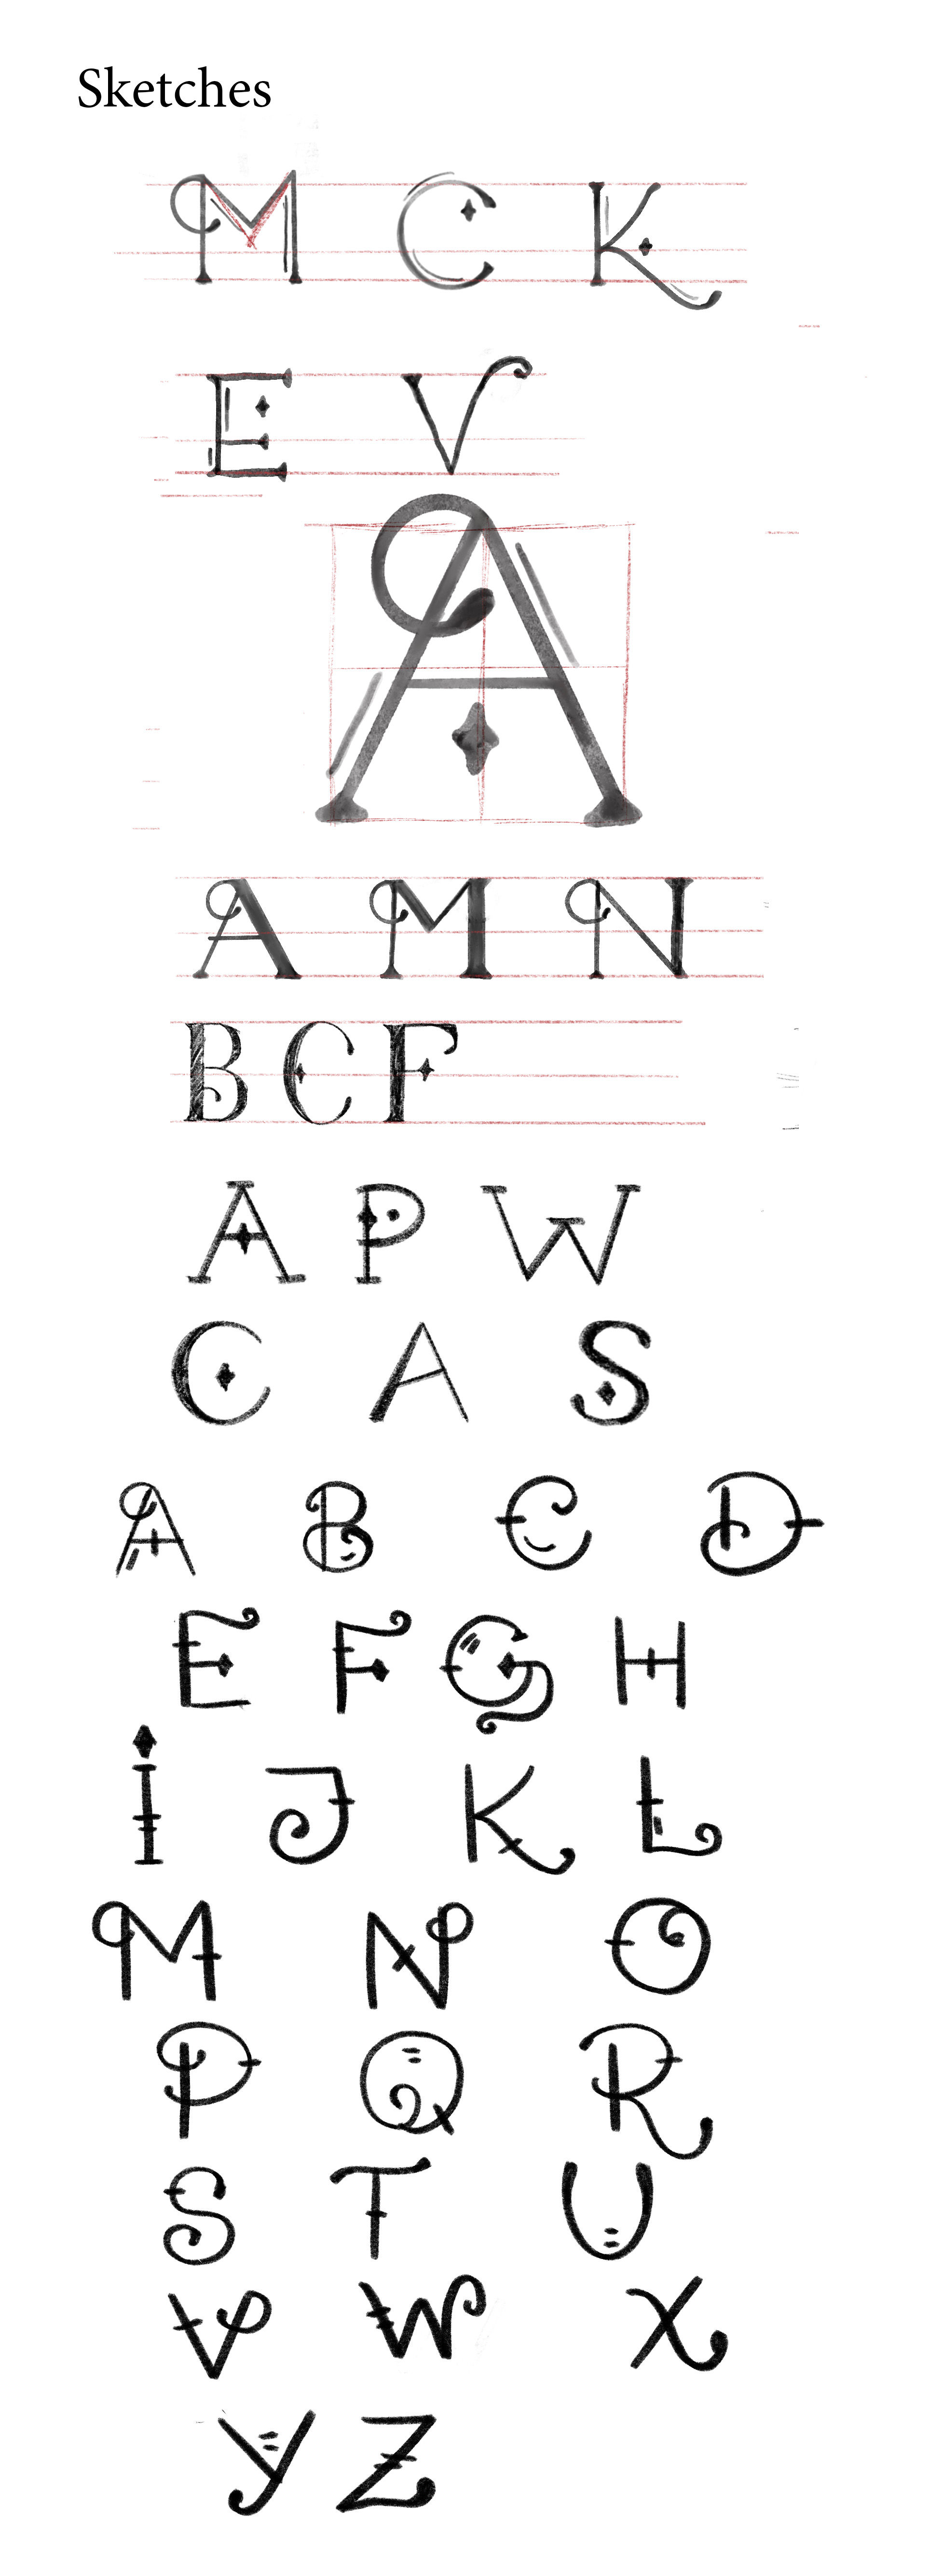 Sketches
M C K
E V
A
A M N
B C F
A P W
C A S
A B C D
E F G H
I J K L
M N O
P Q R
S T U
V W X
Y Z